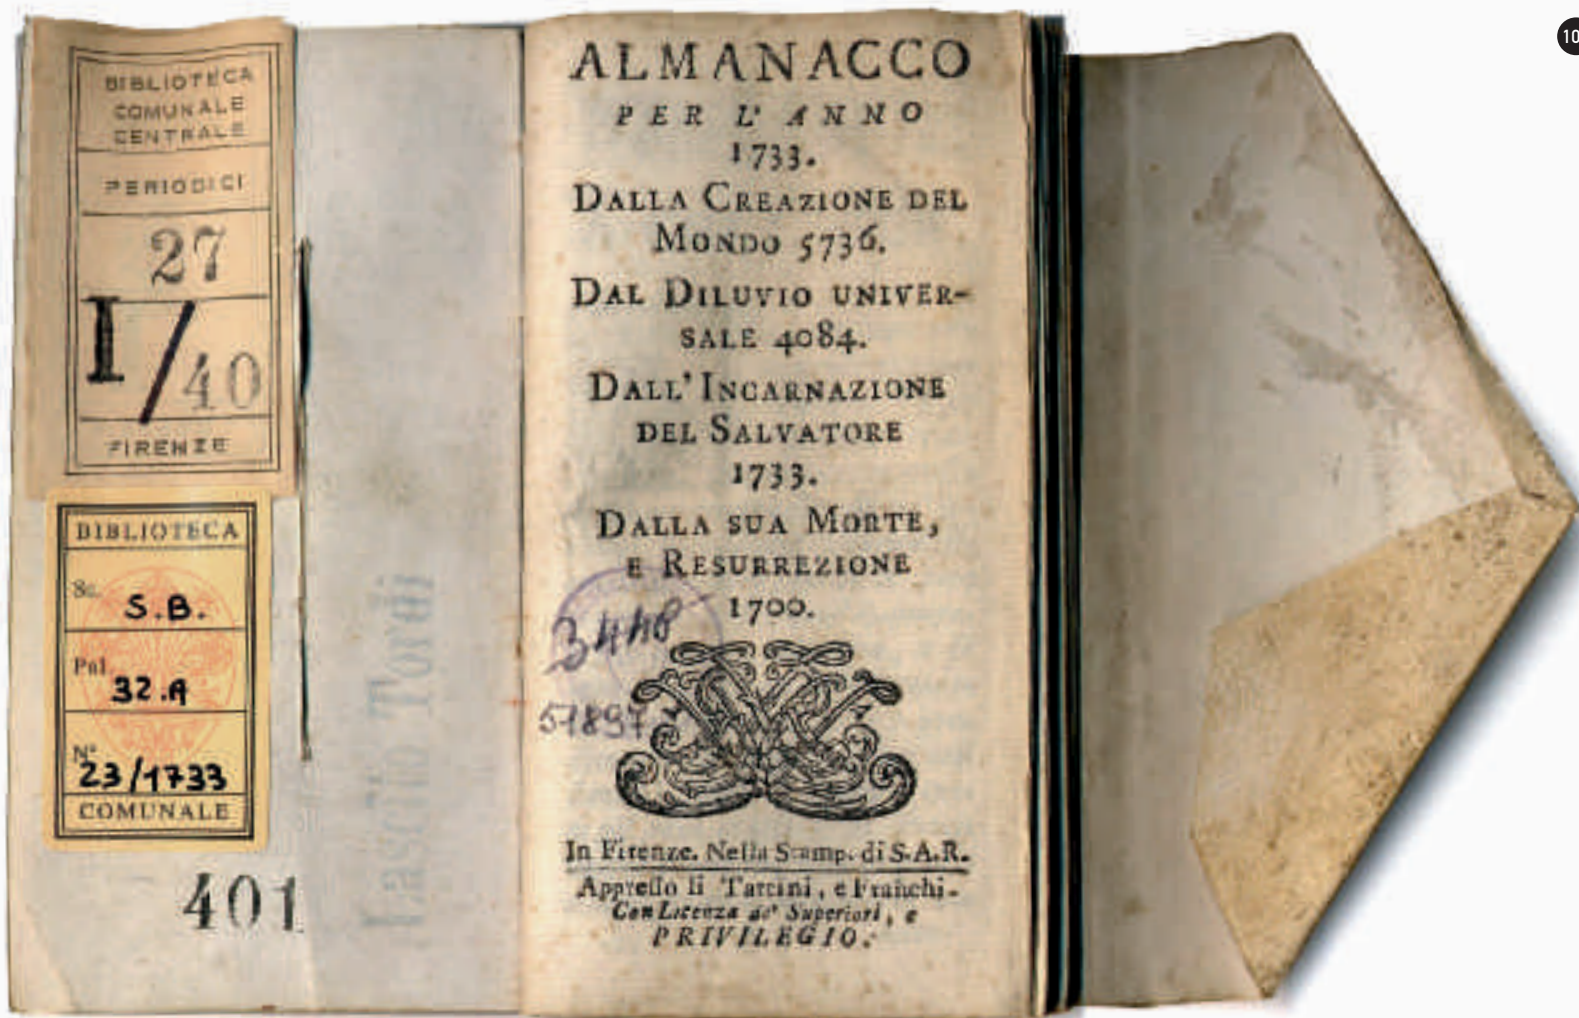 BIBLIOTECA
COMUNALE
CENTRALE
PERIODICI
27
I/40
FIRENZE
BIBLIOTECA
Sc. S.B.
Pal. 32.A
N° 23/1733
COMUNALE
401
Lascito Tordi
ALMANACCO
PER L'ANNO
1733.
DALLA CREAZIONE DEL
MONDO 5736.
DAL DILUVIO UNIVER-
SALE 4084.
DALL'INCARNAZIONE
DEL SALVATORE
1733.
DALLA SUA MORTE,
E RESURREZIONE
1700.
3448
57897
In Firenze. Nella Stamp. di S.A.R.
Appresso li Tartini, e Franchi.
Con Licenza de' Superiori, e
PRIVILEGIO.
10